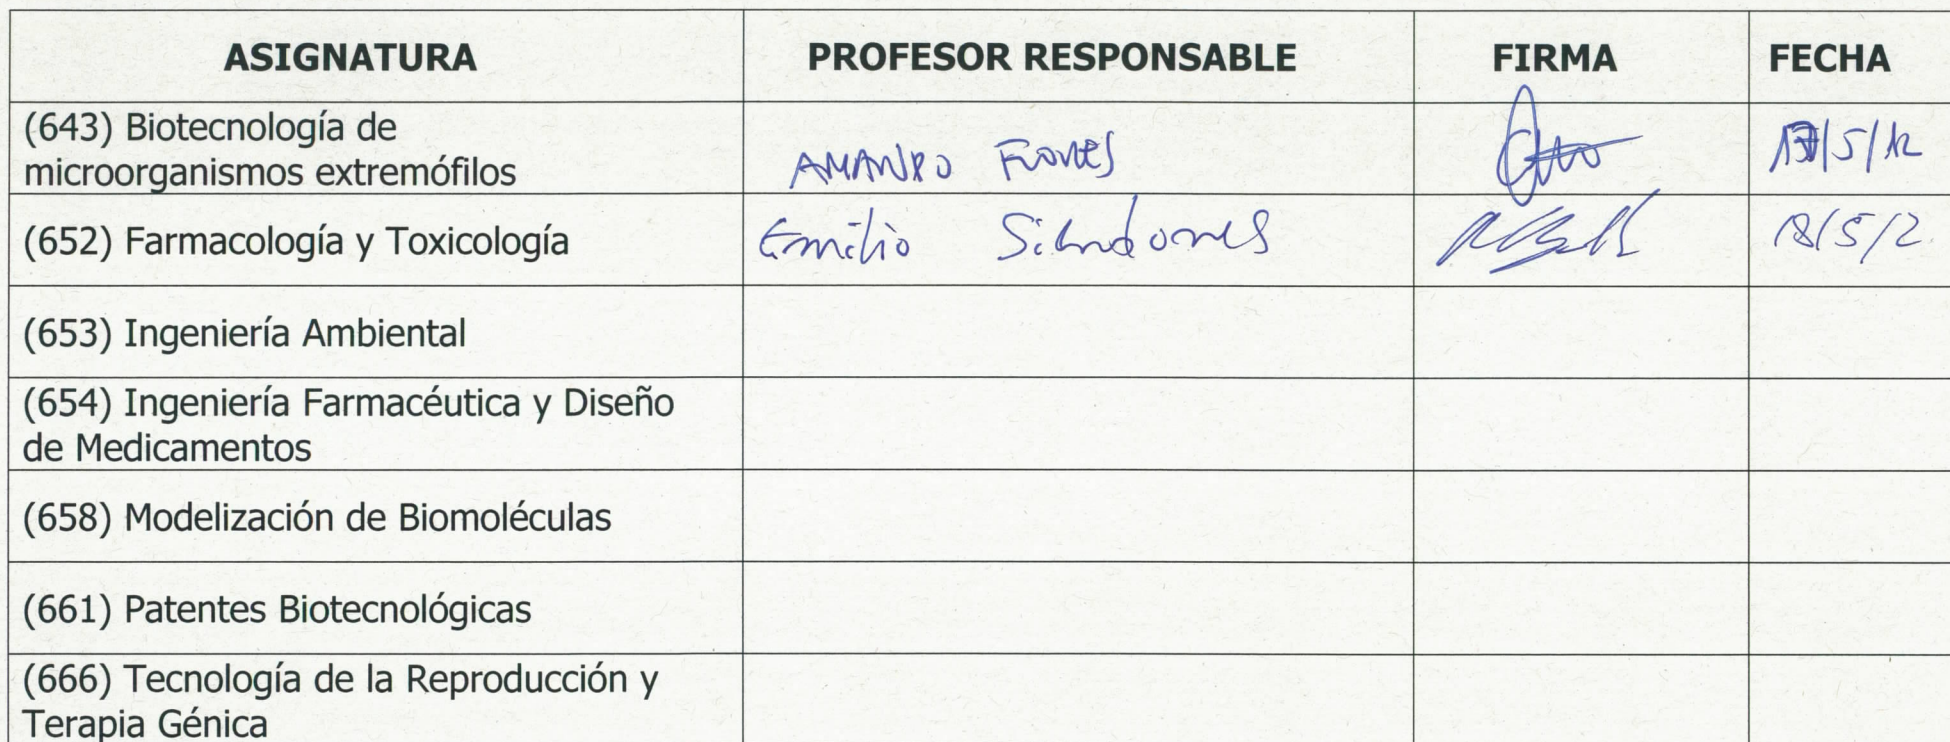 ASIGNATURA PROFESOR RESPONSABLE FIRMA FECHA
(643) Biotecnología de
microorganismos extremófilos
AMANDO FLORES 17/5/12
(652) Farmacología y Toxicología Emilio 18/5/12
(653) Ingeniería Ambiental
(654) Ingeniería Farmacéutica y Diseño
de Medicamentos
(658) Modelización de Biomoléculas
(661) Patentes Biotecnológicas
(666) Tecnología de la Reproducción y
Terapia Génica